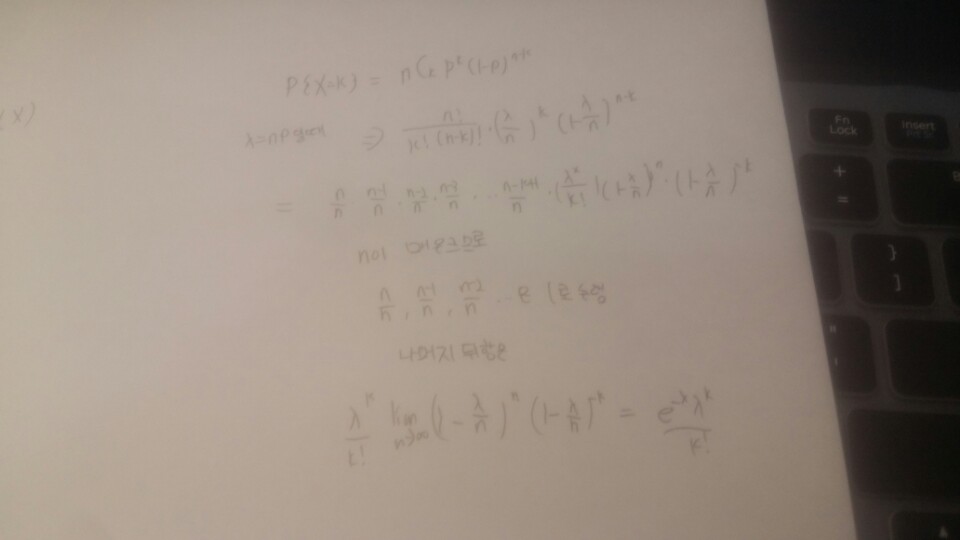 P{X=k} = nCk p^k (1-p)^{n-k}
λ=np ⇒ \frac{n!}{k!(n-k)!} · (\frac{λ}{n})^k (1-\frac{λ}{n})^{n-k}
= \frac{n}{n} · \frac{n-1}{n} · \frac{n-2}{n} · \frac{n-3}{n} ... \frac{n-k+1}{n} · (\frac{λ^k}{k!}) (1-\frac{λ}{n})^n · (1-\frac{λ}{n})^{-k}
n이 매우크므로
\frac{n}{n}, \frac{n-1}{n}, \frac{n-2}{n} ... 은 1로 수렴
나머지 뒤항은
\frac{λ^k}{k!} \lim_{n→∞} (1-\frac{λ}{n})^n (1-\frac{λ}{n})^{-k} = \frac{e^{-λ} λ^k}{k!}
Fn Lock
Insert
+ =
} ]